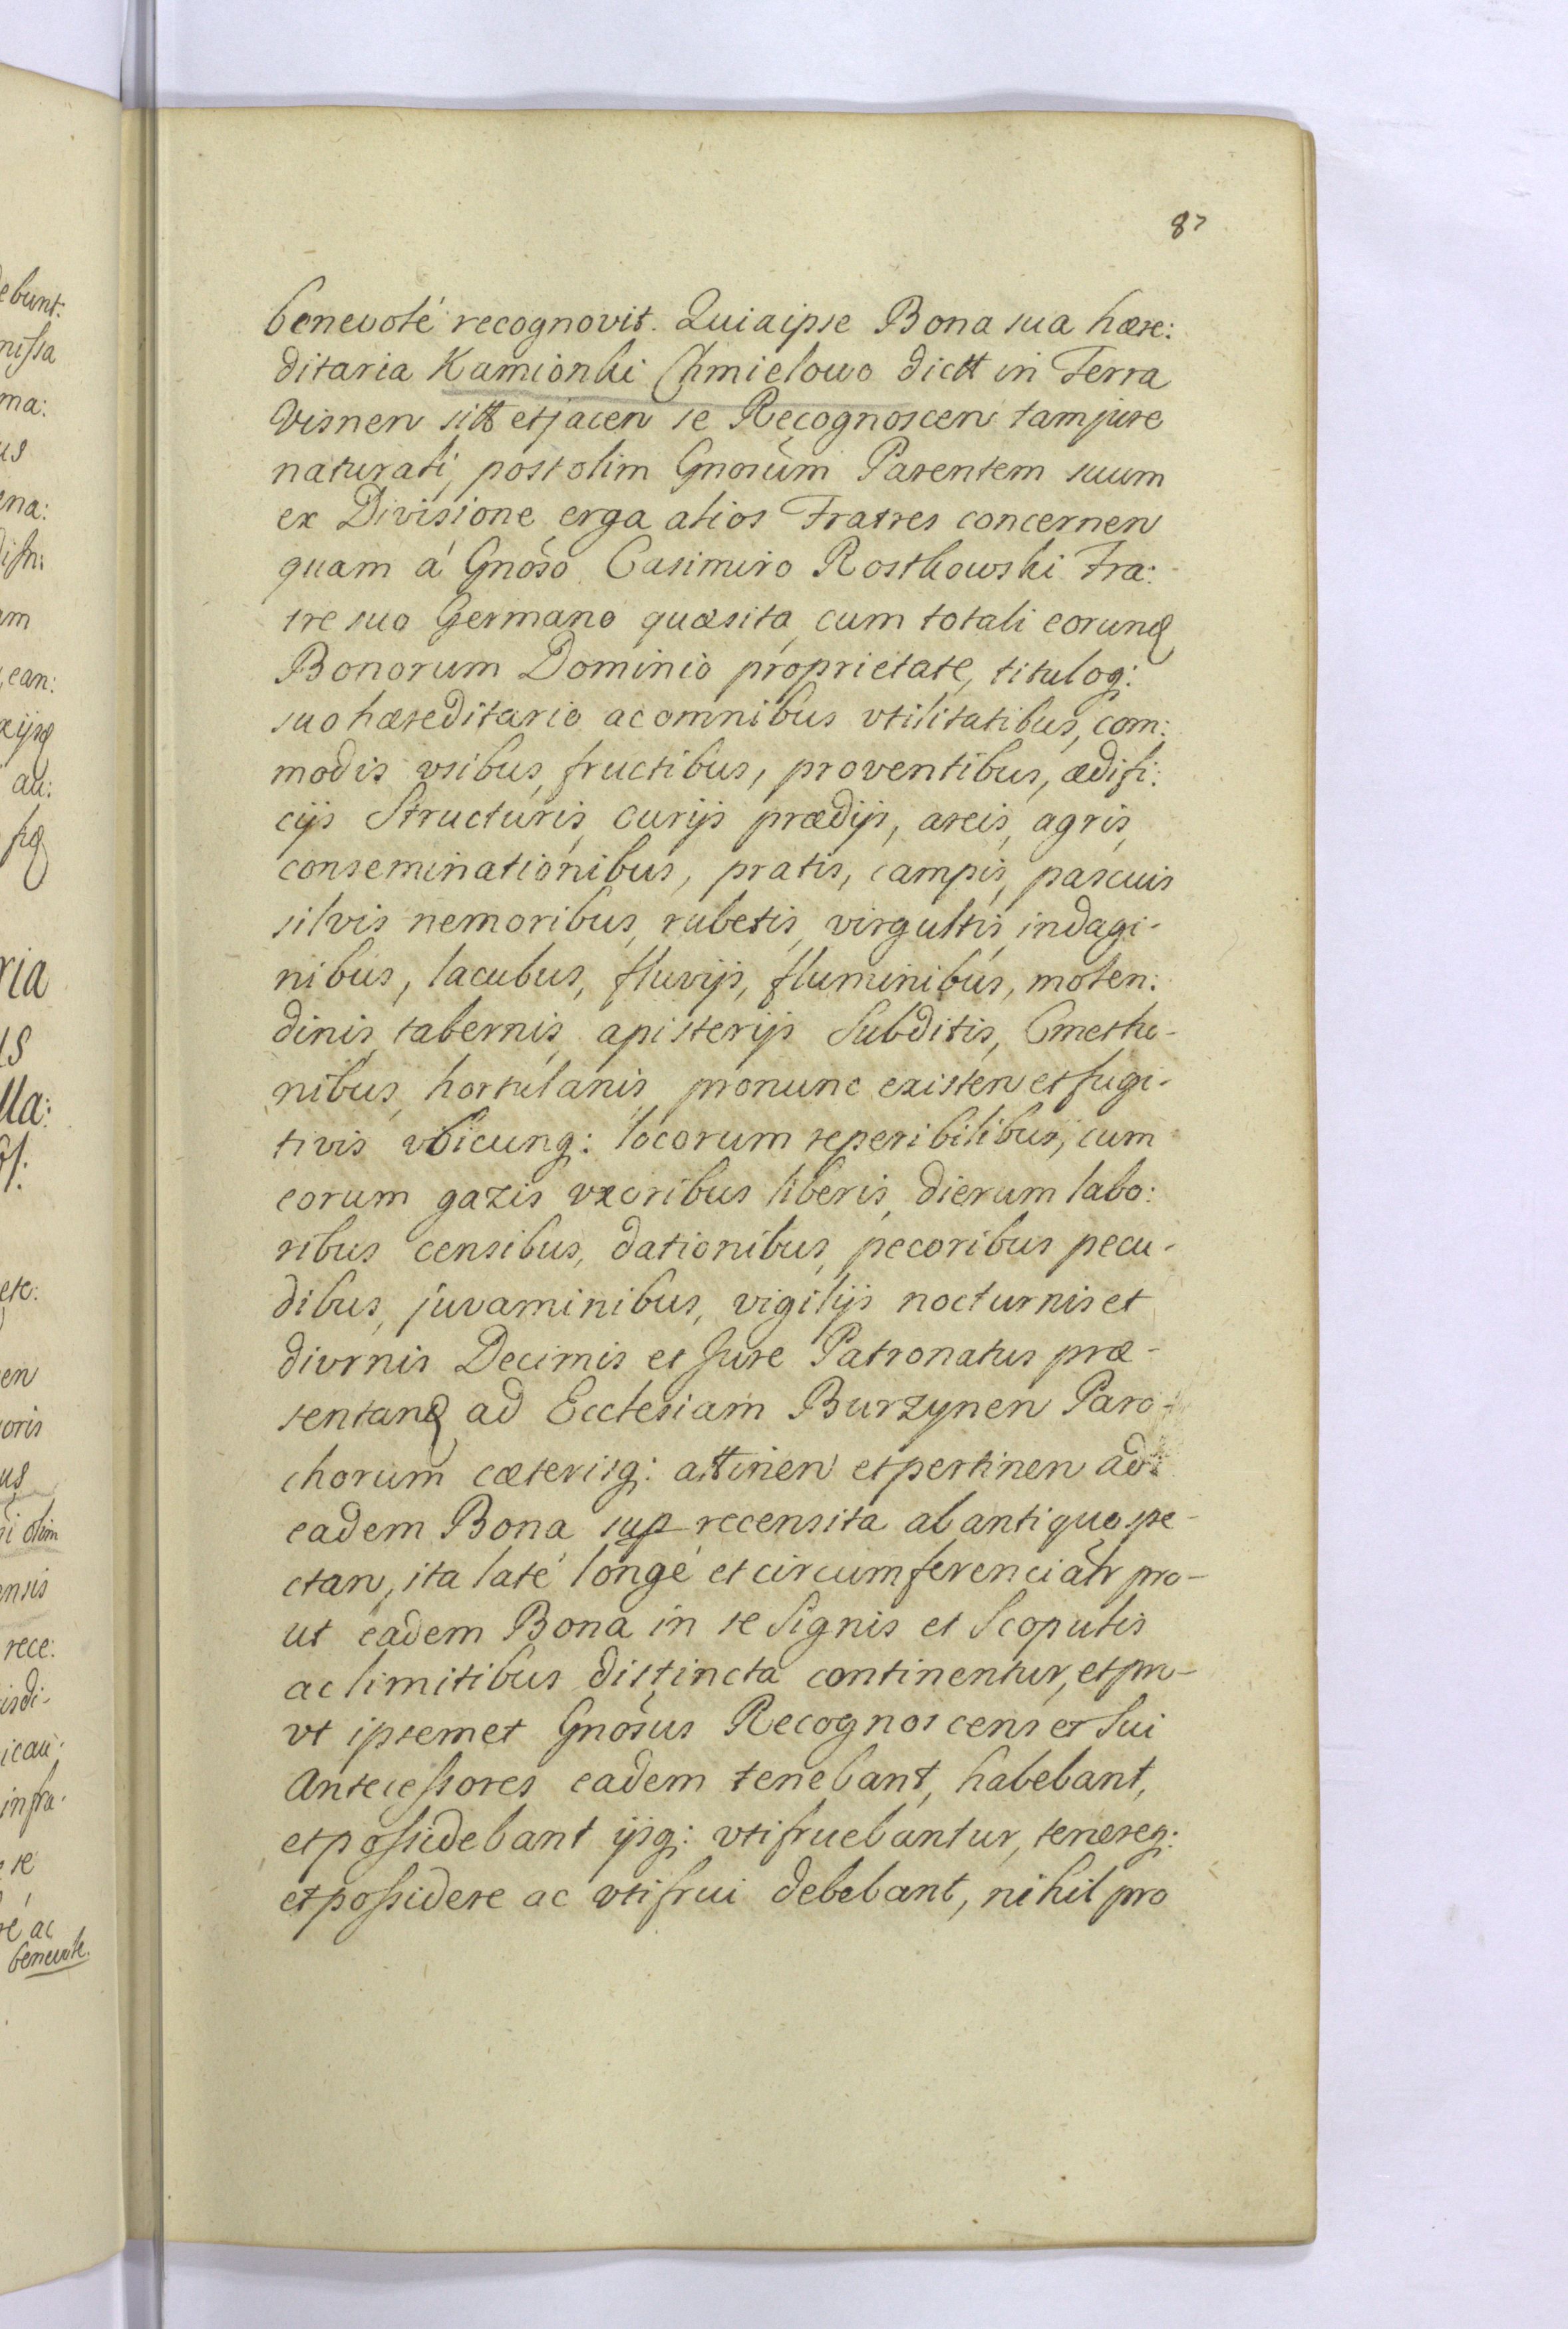 87
benevolé recognovit. Quia ipse Bona sua hære:
ditaria Kamionki Chmielowo dictt in Terra
Visnen sitt et jacen se Recognoscen tam jure
naturali, post olim Gnosum Parentem suum
ex Divisione erga alios Fratres concernen
quam á Gnoso Casimiro Rostkowski Fra:
tre suo Germano quæsita, cum totali eorund
Bonorum Dominio proprietate, tituloq:
suo hæreditario ac omnibus vtilitatibus, com:
modis vsibus, fructibus, proventibus, ædifi:
cijs Structuris, Curijs prædijs, areis, agris,
conseminationibus, pratis, campis, pascuis
silvis nemoribus, rubetis, virgultis, indagi-
nibus, lacubus, fluvijs, fluminibus, molen:
dinis, tabernis, apisterijs Subditis, Cmetho-
nibus, hortulanis, pronunc existen et fugi-
tivis vbicunq: locorum reperibilibus, cum
eorum gazis vxoribus liberis, dierum labo:
ribus censibus, dationibus, pecoribus pecu-
dibus, juvaminibus, vigilijs nocturnis et
divrnis Decimis et Jure Patronatus præ-
sentand ad Ecclesiam Burzynen Paro-
chorum cæterisq: attinen et pertinen ad
eadem Bona sup recensita ab antiquo spe-
ctan, ita laté longé et circumferencialr pro-
ut eadem Bona in se Signis et Scopulis
ac limitibus distincta continentur, et pro-
vt ipsemet Gnosus Recognoscens et Sui
Antecessores eadem tenebant, habebant,
et possidebant ijsq: vtifruebantur, tenereq:
et possidere ac vtifrui debebant, nihil pro
ebunt:
nissa
ma:
us
ena:
am
ean:
au:
ria
us
lla:
etc:
en
oris
us
olim
ensis
rece:
isdi-
icau:
infra-
se
ac
benevole.